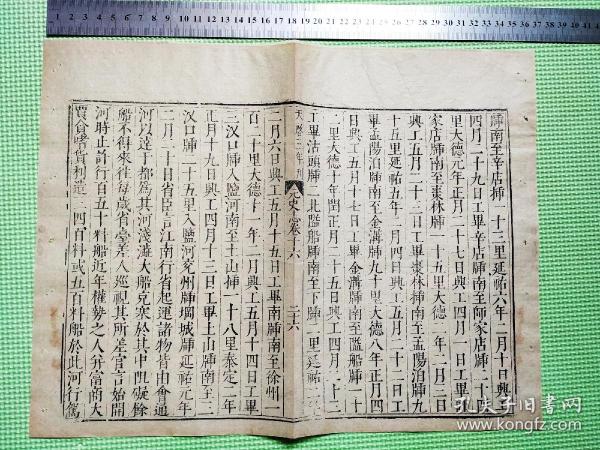 牐南至辛店牐二十三里延祐六年二月十日興工
四月二十九日工畢辛店牐南至師家店牐二十四
里大德元年正月二十七日興工四月一日工畢師
家店牐南至棗林牐一十五里大德二年二月三日
興工五月二十三日工畢棗林牐南至孟陽泊牐九
十五里延祐五年二月四日興工五月二十二日工
畢孟陽泊牐南至金溝牐九十里大德八年正月四
日興工五月十七日工畢金溝牐南至隘船牐一十
二里大德十年閏正月二十五日興工四月二十三
工畢沽頭牐二北隘船牐南至下牐二里延祐二年
元史卷十六
二十六
二月六日興工五月十五日工畢南牐南至徐州一
百二十里大德十一年二月興工五月十四日工畢
三汊口牐入鹽河南至土山牐一十八里泰定二年
正月十九日興工四月十三日工畢土山牐南至三
汊口牐二十五里入鹽河兗州牐堽城牐延祐元年
二月二十日省臣言江南行省起運諸物皆由會通
河以達于都為其河淺澁大船充塞於其中阻礙餘
船不得來往每歲省臺差人巡視其所差官言始開
河時止許行百五十料船近年權勢之人并富商大
賈貪嗜貨利造三四百料或五百料船於此河行駕
孔夫子旧书网
www.kongfz.com